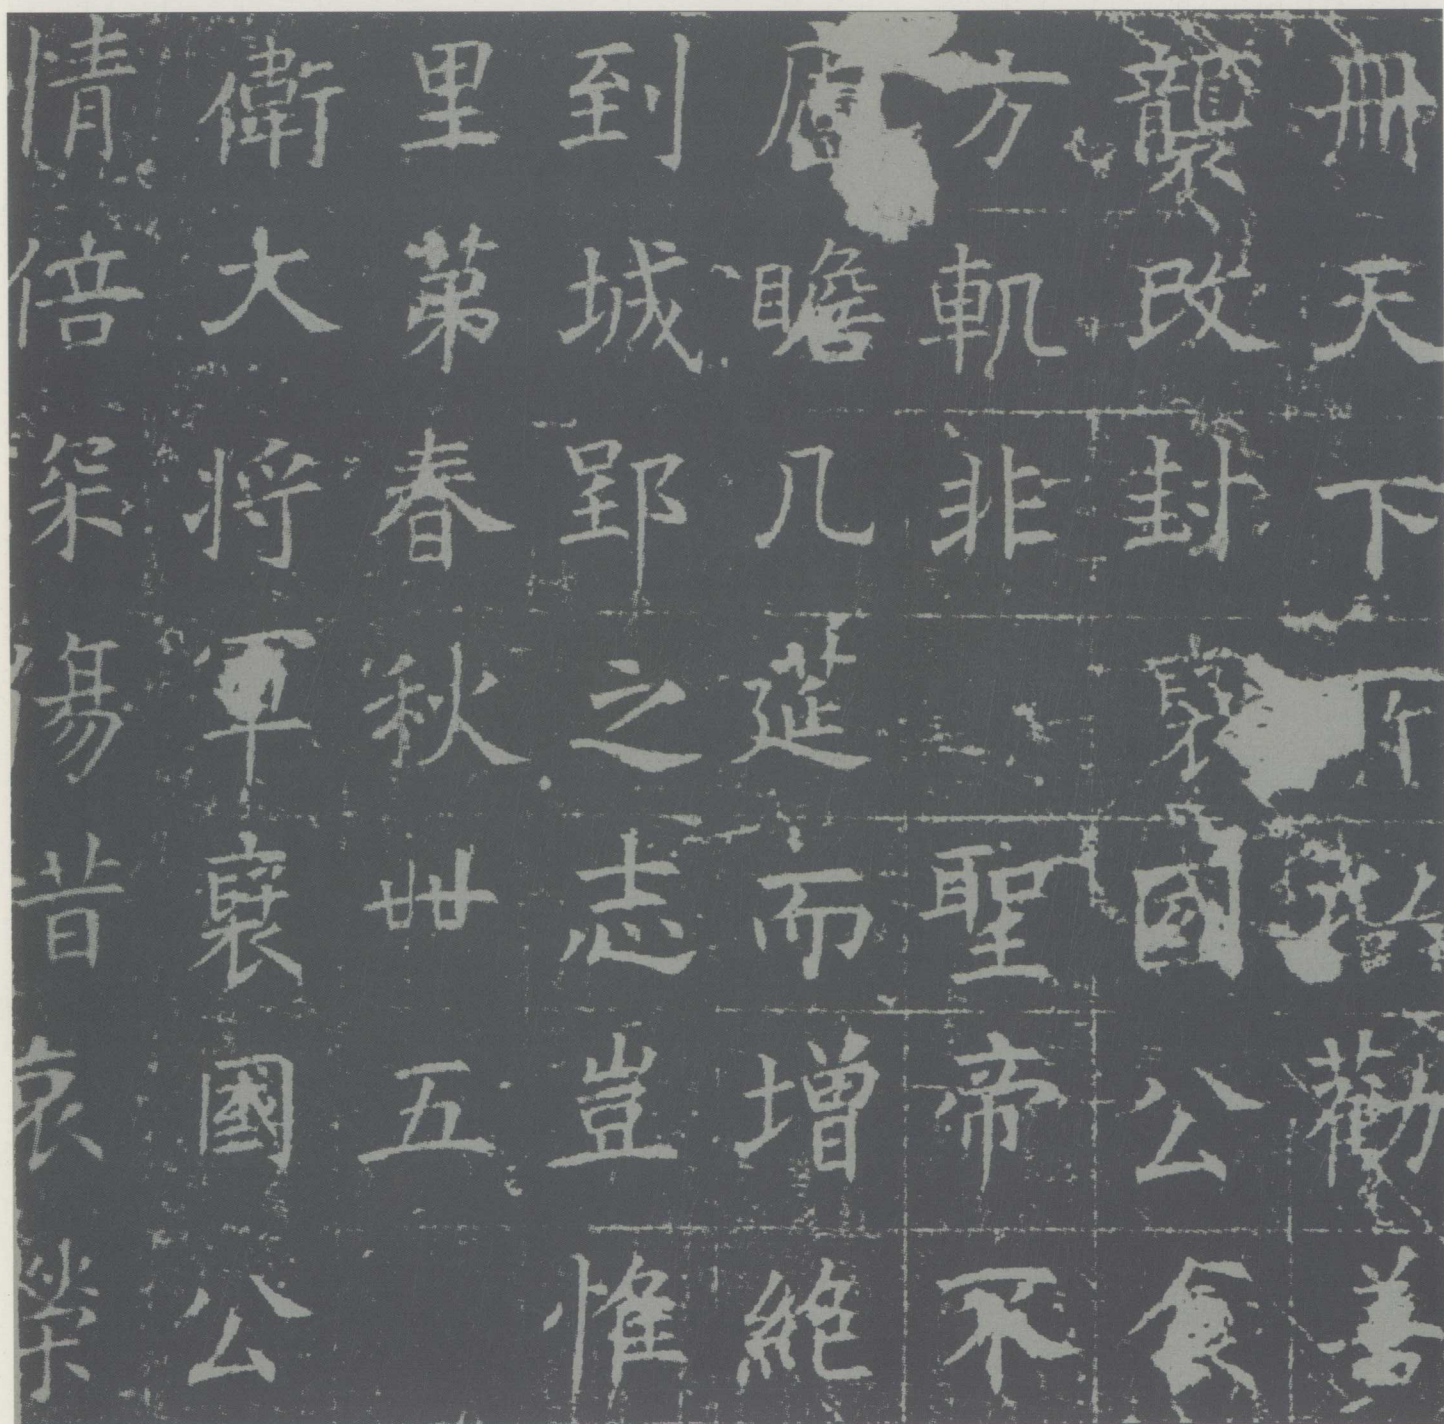 冊天下下以勸善
襲改封襃國公食
方軌非聖帝不
唐瞻几莚而增絶
到城郢之志豈惟
里第春秋卌五
衛大将軍襃國公
情倍深傷昔哀榮